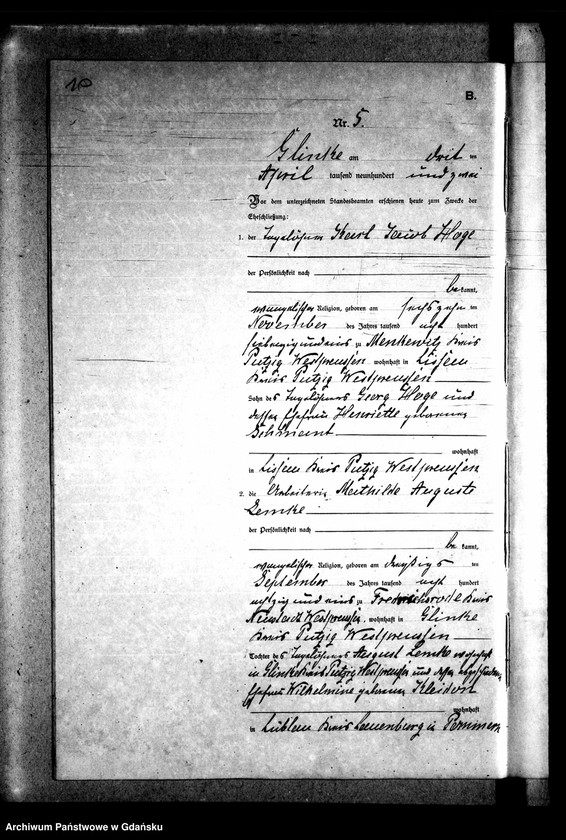 10
B.
Nr. 5.
Glinke am drit ten
April tausend neunhundert und zwei
Vor dem unterzeichneten Standesbeamten erschienen heute zum Zwecke der
Eheschließung:
1. der Karl Jacob Hoge
der Persönlichkeit nach
be kannt,
evangelischer Religion, geboren am sechszehn ten
November des Jahres tausend acht hundert
siebenzig und eins zu Menkewitz Kreis
Putzig Westpreussen wohnhaft in Lissau
Kreis Putzig Westpreussen
Sohn des Georg Hoge und
dessen Ehefrau Henriette geborenen
wohnhaft
in Kreis Putzig Westpreussen
2. die Arbeiterin Mathilde Auguste
Lemke
der Persönlichkeit nach
be kannt,
evangelischer Religion, geboren am dreißigs ten
September des Jahres tausend acht hundert
achtzig und eins zu Kreis
Neustadt Westpreussen, wohnhaft in Glinke
Kreis Putzig Westpreussen
Tochter des August Lemke wohnhaft
in Glinke Kreis Putzig Westpreussen und dessen
Ehefrau Wilhelmine geborenen
wohnhaft
in Lüblow Kreis Lauenburg in Pommern
Archiwum Państwowe w Gdańsku